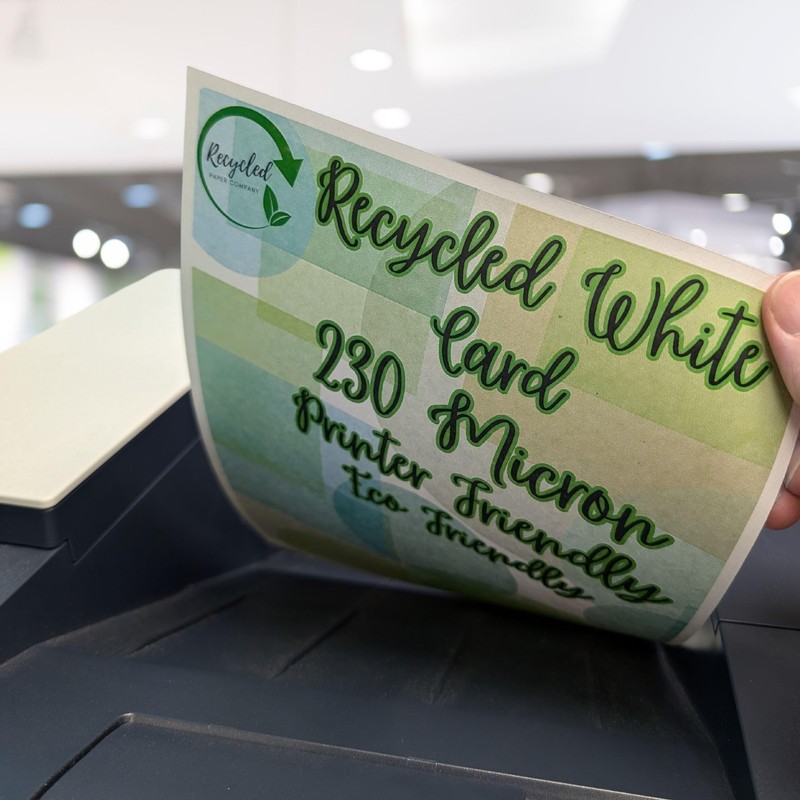 Recycled
PAPER COMPANY
Recycled White
Card
230 Micron
Printer Friendly
Eco Friendly